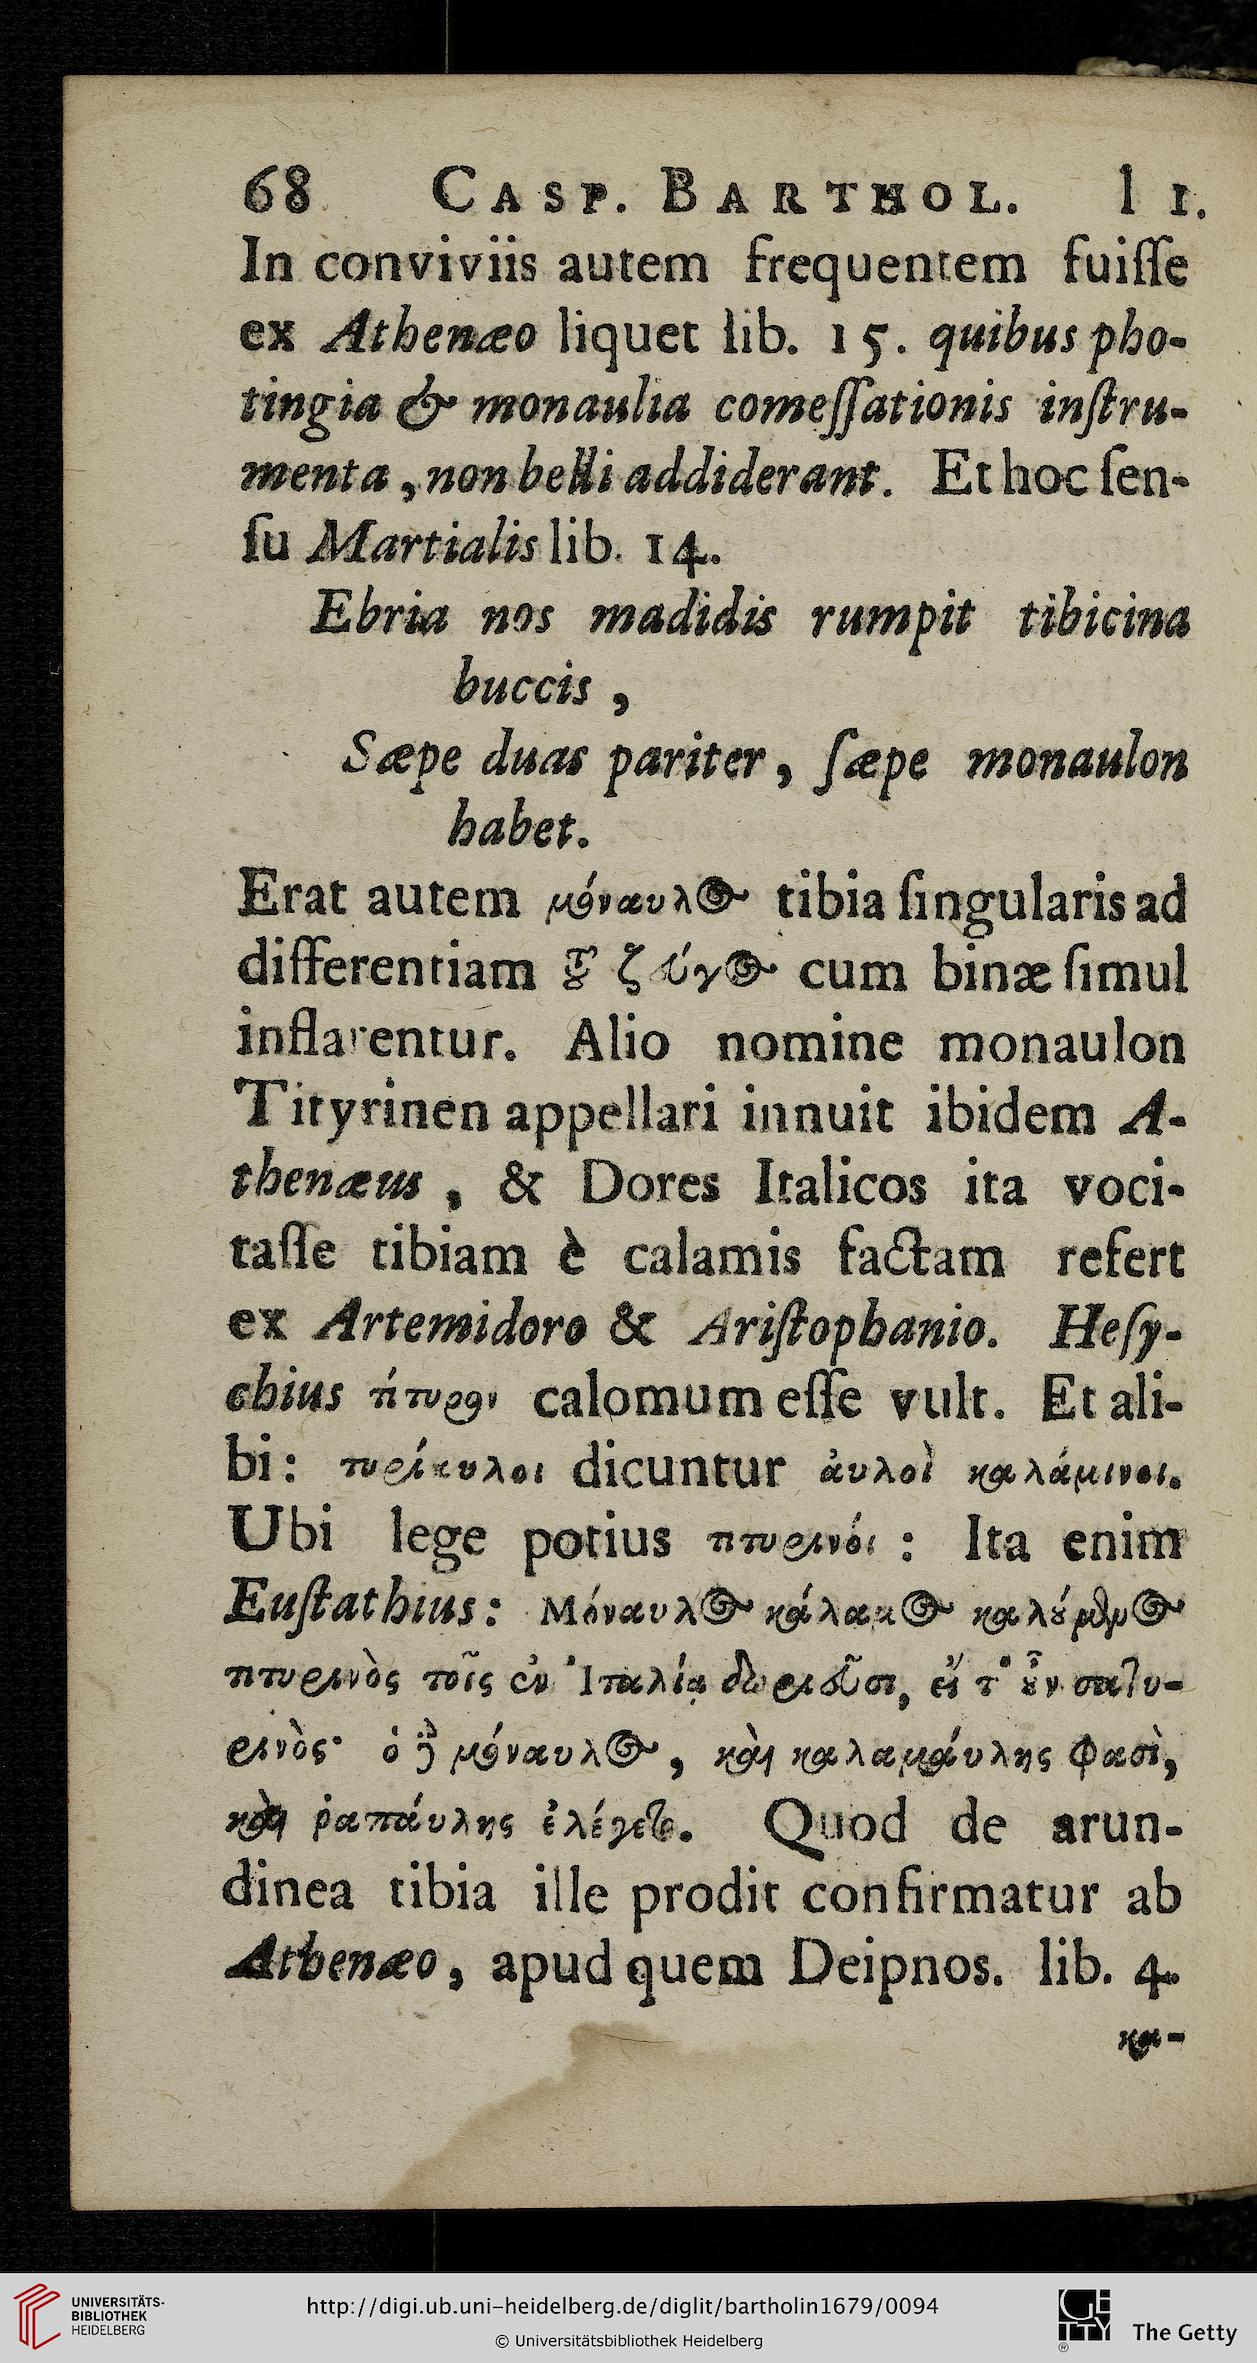 68 CASP. BARTHOL. l 1.
In conviviis autem frequentem fuiſſe
ex Athenæo liquet lib. 15. quibus pho-
tingia & monaulia comeſſationis inſtru-
menta, non belli addiderant. Et hoc ſen-
ſu Martialis lib. 14.
Ebria nos madidis rumpit tibicina
buccis,
Sæpe duas pariter, ſæpe monaulon
habet.
Erat autem μόναυλος tibia ſingularis ad
differentiam τȣ͂ ζύγος cum binæ ſimul
inflarentur. Alio nomine monaulon
Tityrinen appellari innuit ibidem A-
thenæus, & Dores Italicos ita voci-
taſſe tibiam è calamis factam refert
ex Artemidoro & Ariſtophanio. Heſy-
chius calomum eſſe vult. Et ali-
bi: dicuntur ἀυλοὶ καλάμινοι.
Ubi lege potius τιτυρινόι: Ita enim
Euſtathius: Μόναυλος κάλαμος καλȣ́μενος
τιτυρινὸς τοῖς ἐν Ἰταλίᾳ δωριεῦσι, εἴ τ' ȣ̓͂ν σατυ-
ρινὸς· ὁ δὲ μόναυλος, καὶ καλαμάυλης φασὶ,
καὶ ῥαπάυλης ἐλέγετο. Quod de arun-
dinea tibia ille prodit confirmatur ab
Athenæo, apud quem Deipnos. lib. 4.
κα-
UNIVERSITÄTS-
BIBLIOTHEK
HEIDELBERG
http://digi.ub.uni-heidelberg.de/diglit/bartholin1679/0094
© Universitätsbibliothek Heidelberg
GETTY
®
The Getty